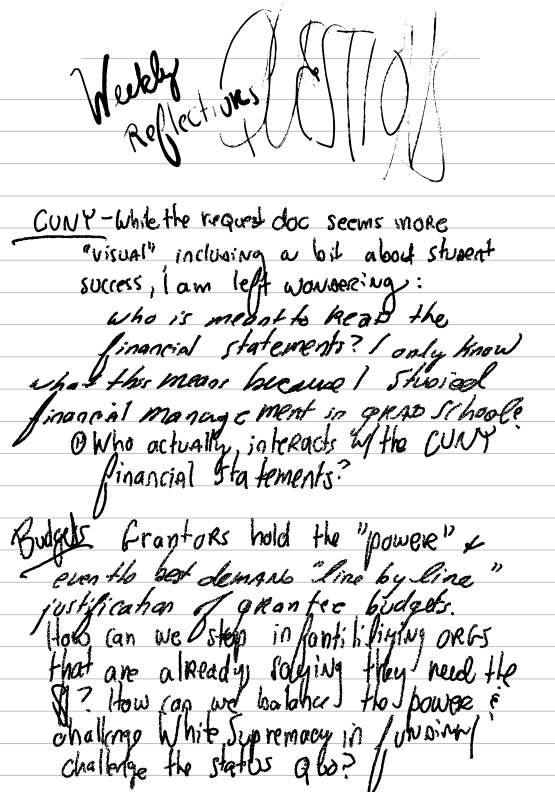 Weekly
Reflections
+ QUESTIONS
CUNY - While the request doc seems more
"visual" including a bit about student
success, I am left wondering:
who is meant to READ the
financial statements? I only know
what this means because I studied
financial management in GRAD School?
① Who actually interacts w/ the CUNY
financial statements?
Budgets Grantors hold the "power" &
even the best demand "line by line"
justification of grantee budgets.
How can we stop infantilizing ORGS
that are already saying they need the
$? How can we balance the power &
challenge White Supremacy in funding/
challenge the status quo?